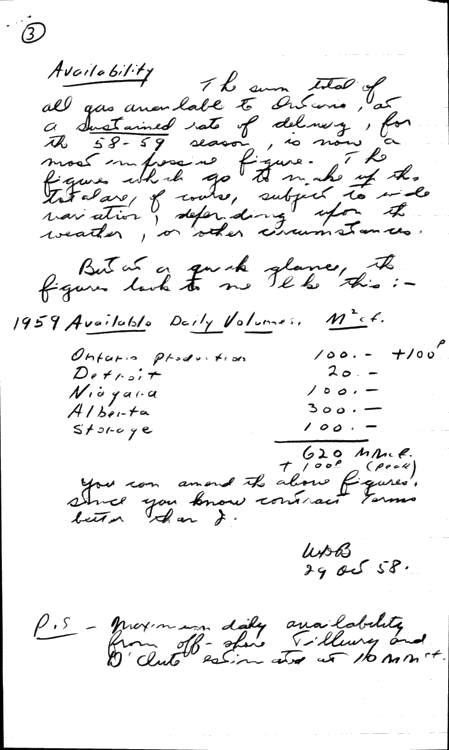 3
Availability
The sum total of
all gas available to Ontario, at
a sustained rate of delivery, for
the 58-59 season, is now a
most impressive figure. The
figures which go to make up the
total are, of course, subject to wide
variation, depending upon the
weather, or other circumstances.
But at a quick glance, the
figures look to me like this :-
1959 Available Daily Volumes, M²cf.
Ontario Production 100.- +100P
Detroit 20.-
Niagara 100.-
Alberta 300.-
Storage 100.-
620 MMcf.
+ 100P (peak)
You can amend the above figures,
since you know contract terms
better than I.
WDB
29 Oct 58.
P.S - Maximum daily availability
from off-shore Tilbury and
D'Clute estimated at 10 MMcf.